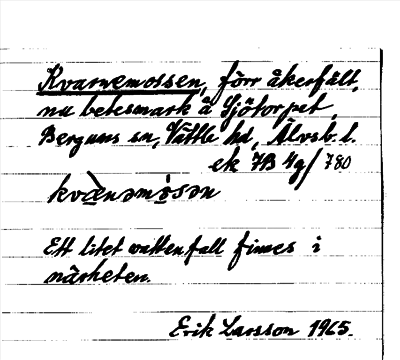 Kvarnemossen, förr åkerfält,
nu betesmark å Sjötorpet,
Bergums sn, Vättle hd, Älvsb. l.
ek 7B 4g/780
kvànəmòsən
Ett litet vattenfall finnes i
närheten.
Erik Larsson 1965.